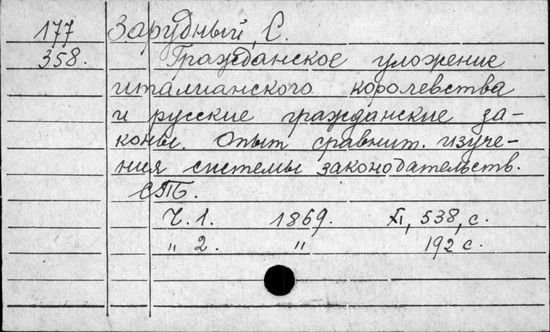 177 Зарудный, С.
358. Гражданское уложение
италианского королевства
и русские гражданские за-
коны. Опыт сравнит. изуче-
ния системы законодательств.
СПб.
Ч. 1. 1869. XI, 538, с.
„ 2. „ 192 с.